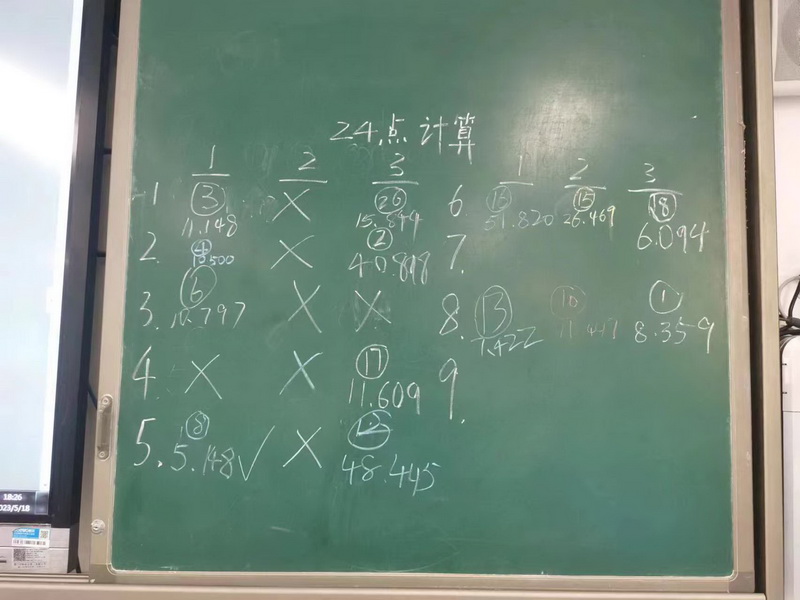 24点计算
1 2 3 1 2 3
1 ③ X ㉖ 6 ⑮ ⑱
11.148 26.469
2. ④ X ② 7. 6.094
10.500 40.898
3. ⑥ X X 8. ⑬ ⑩ ①
.797 8.359
4. X X ⑰ 9.
11.609
5. ⑧ X
5.148√ 48.445
18:26
023/5/18